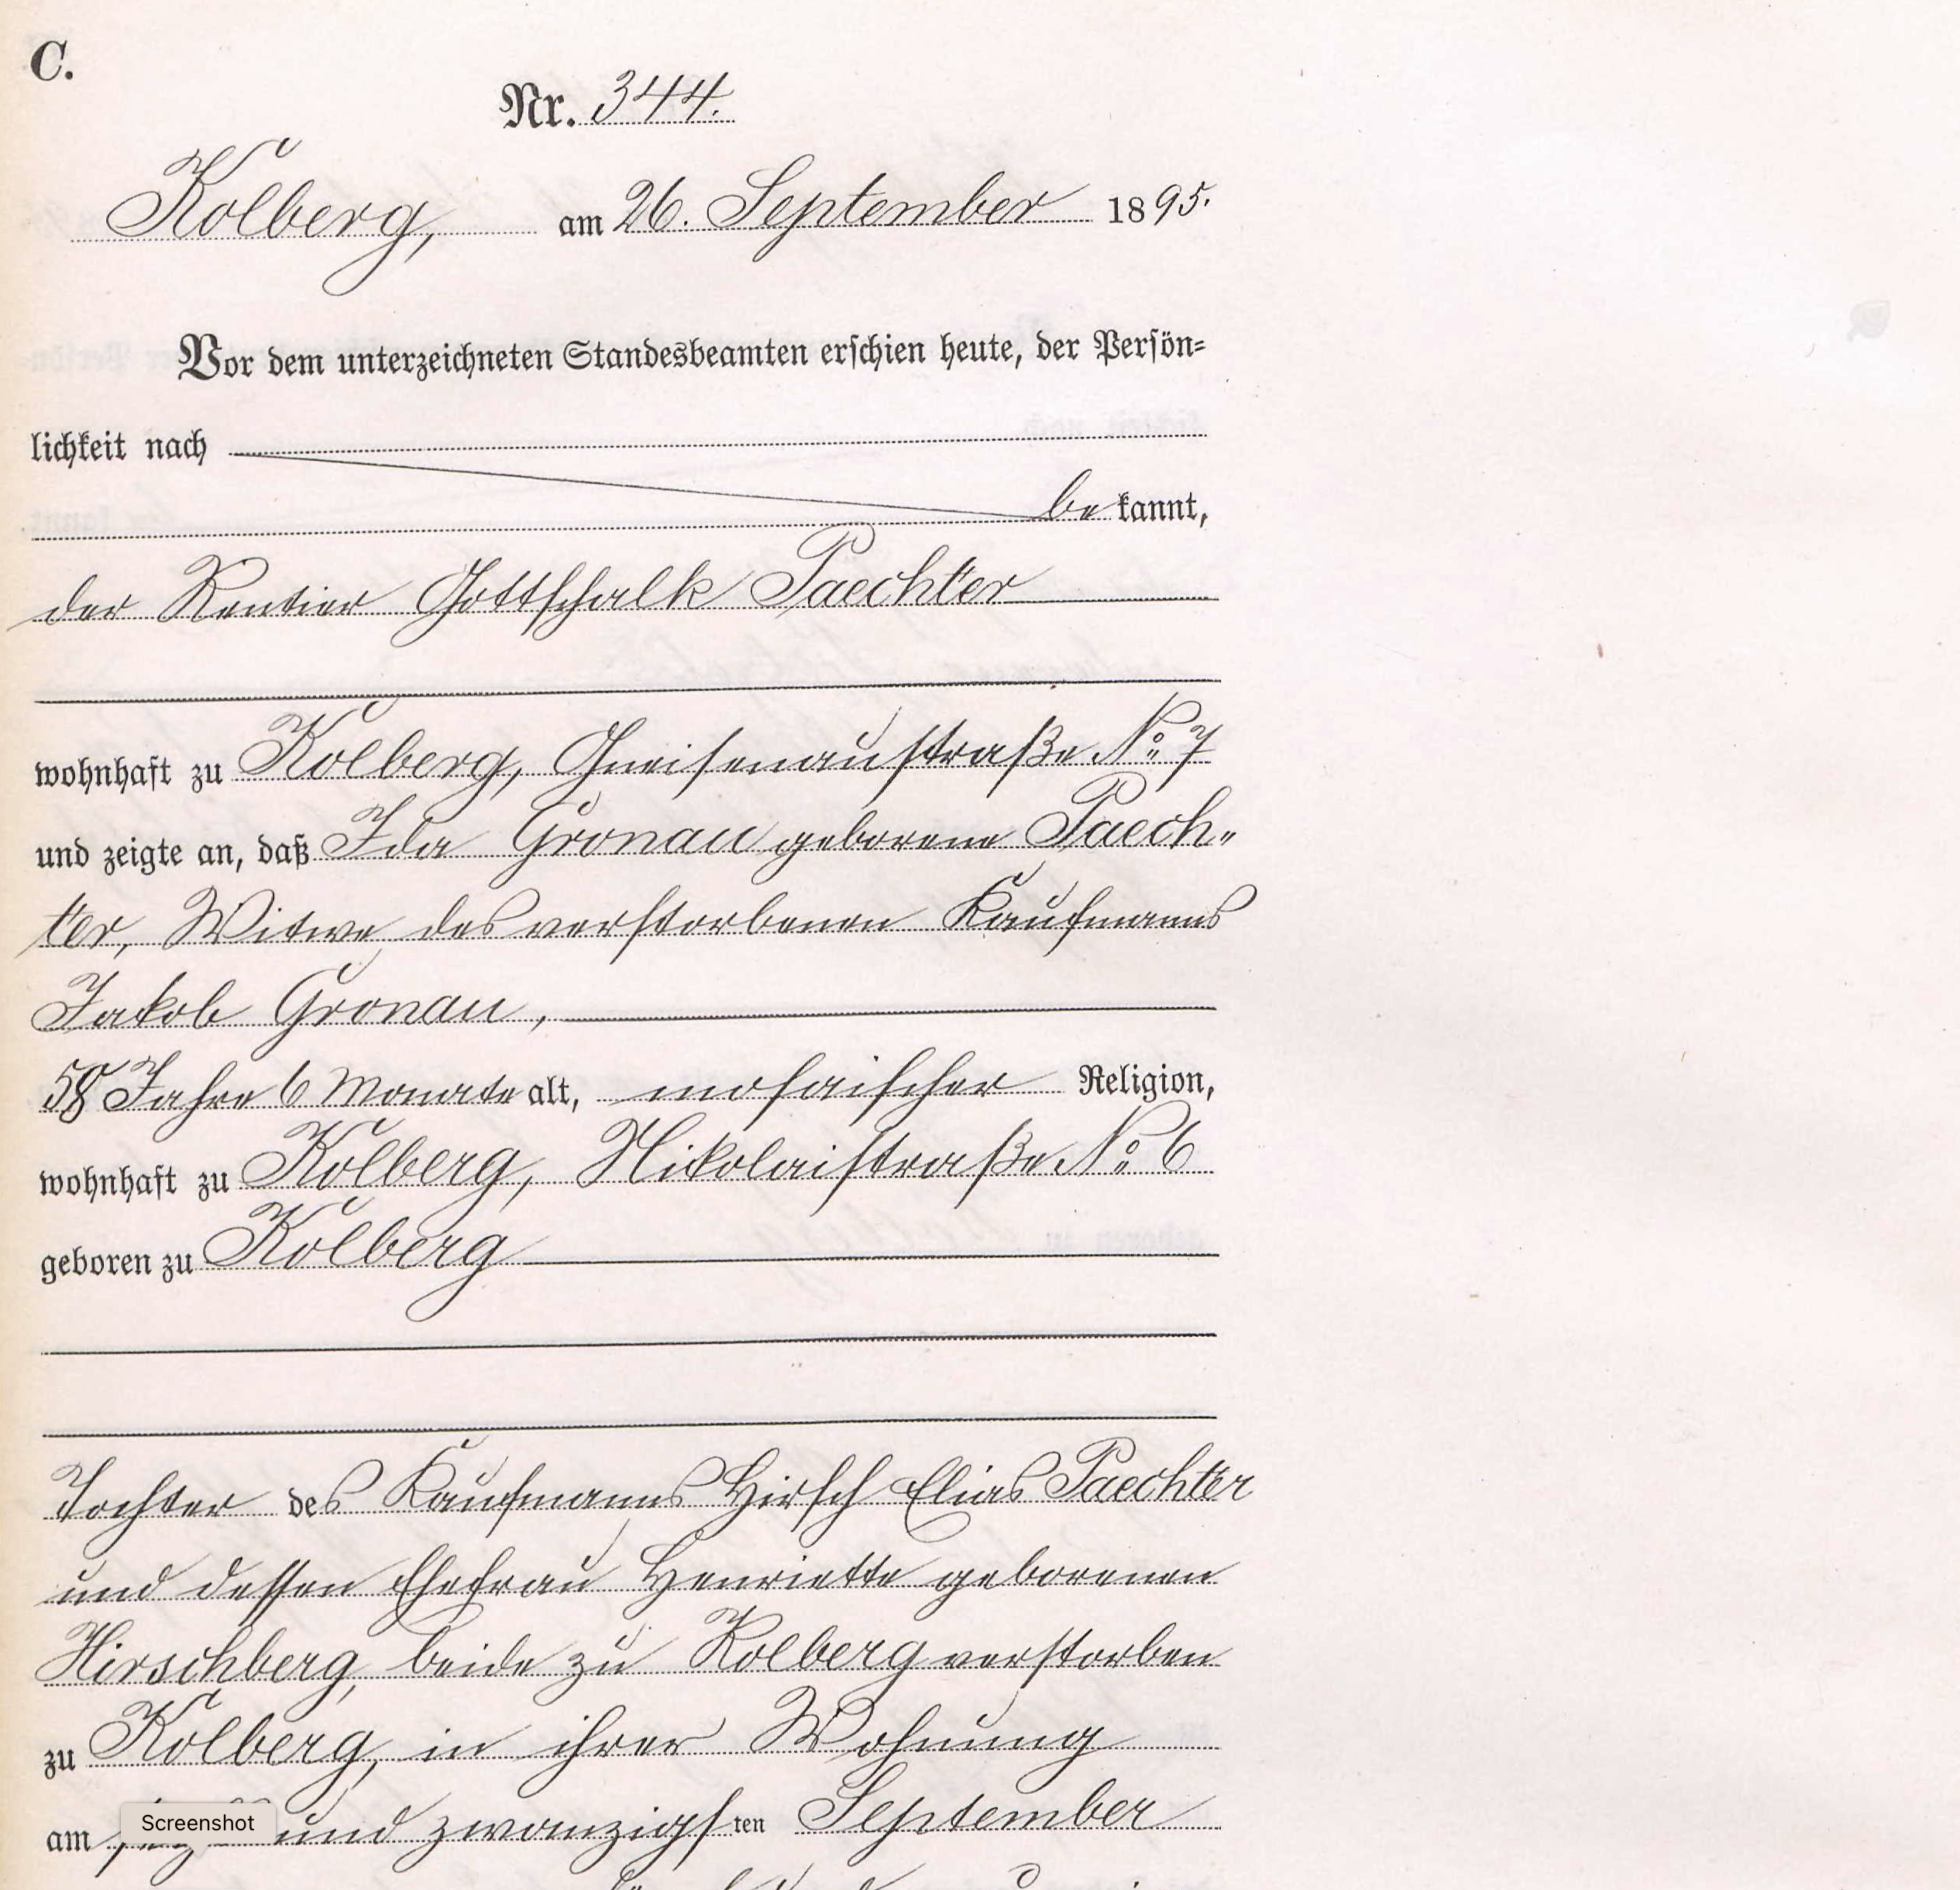 C.
Nr. 344.
Kolberg, am 26. September 1895.
Vor dem unterzeichneten Standesbeamten erschien heute, der Persön=
lichkeit nach
be kannt,
der Rentier Gottschalk Paechter
wohnhaft zu Kolberg, Gneisenaustraße No 7
und zeigte an, daß Ida Gronau geborene Paech„
ter, Witwe des verstorbenen Kaufmanns
Jakob Gronau,
58 Jahre 6 Monate alt, mosaischer Religion,
wohnhaft zu Kolberg, Nikolaistraße No 6
geboren zu Kolberg
Tochter des Kaufmanns Hirsch Elias Paechter
und dessen Ehefrau Henriette geborenen
Hirschberg, beide zu Kolberg verstorben
zu Kolberg, in ihrer Wohnung
am und zwanzigsten September
Screenshot